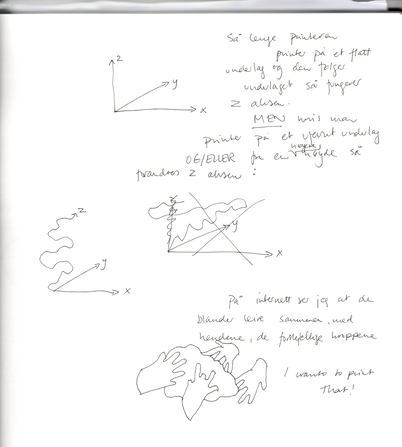 Så lenge printeren
printe på et flatt
underlag og den følger
underlaget så fungerer
Z aksen.
MEN hvis man
printe på et ujevnt underlag
OG/ELLER fra en høyde så
forandres Z aksen :
z
y
x
z
y
x
z
y
x
På internett ser jeg at de
blander leire sammen, med
hendene, de forskjellige
I wants to print
That!